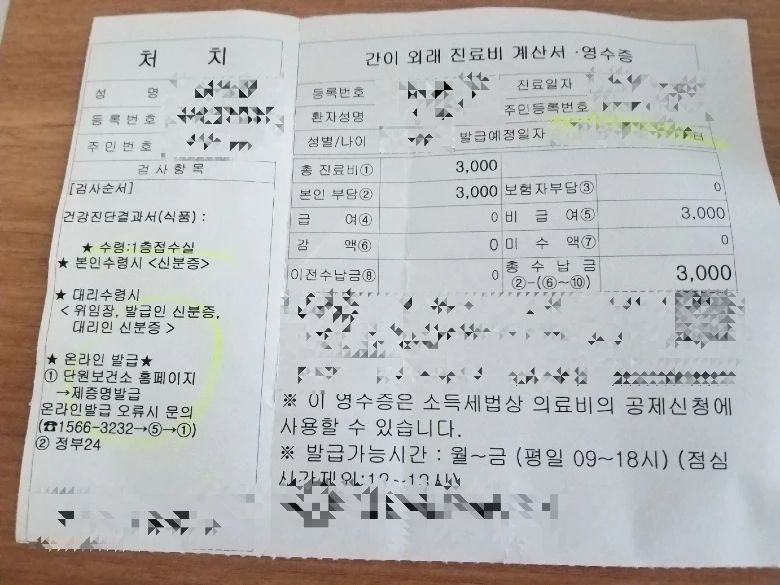 처 치
성 명
등 록 번 호
주 민 번 호
검 사 항 목
[검사순서]
건강진단결과서(식품) :
★ 수령:1층접수실
★ 본인수령시 <신분증>
★ 대리수령시
< 위임장, 발급인 신분증,
대리인 신분증 >
★ 온라인 발급★
① 단원보건소 홈페이지
→제증명발급
온라인발급 오류시 문의
(☎1566-3232→⑤→①)
② 정부24
간이 외래 진료비 계산서 ·영수증
등록번호 진료일자
환자성명 주민등록번호
성별/나이 발급예정일자 터
총 진료비① 3,000
본인 부담② 3,000 보험자부담③ 0
급 여④ 0 비 급 여⑤ 3,000
감 액⑥ 0 미 수 액⑦ 0
이전수납금⑧ 0 총 수 납 금 3,000
②-(⑥~⑩)
※ 이 영수증은 소득세법상 의료비의 공제신청에
사용할 수 있습니다.
※ 발급가능시간 : 월~금 (평일 09~18시) (점심
시간제외:12~13시)